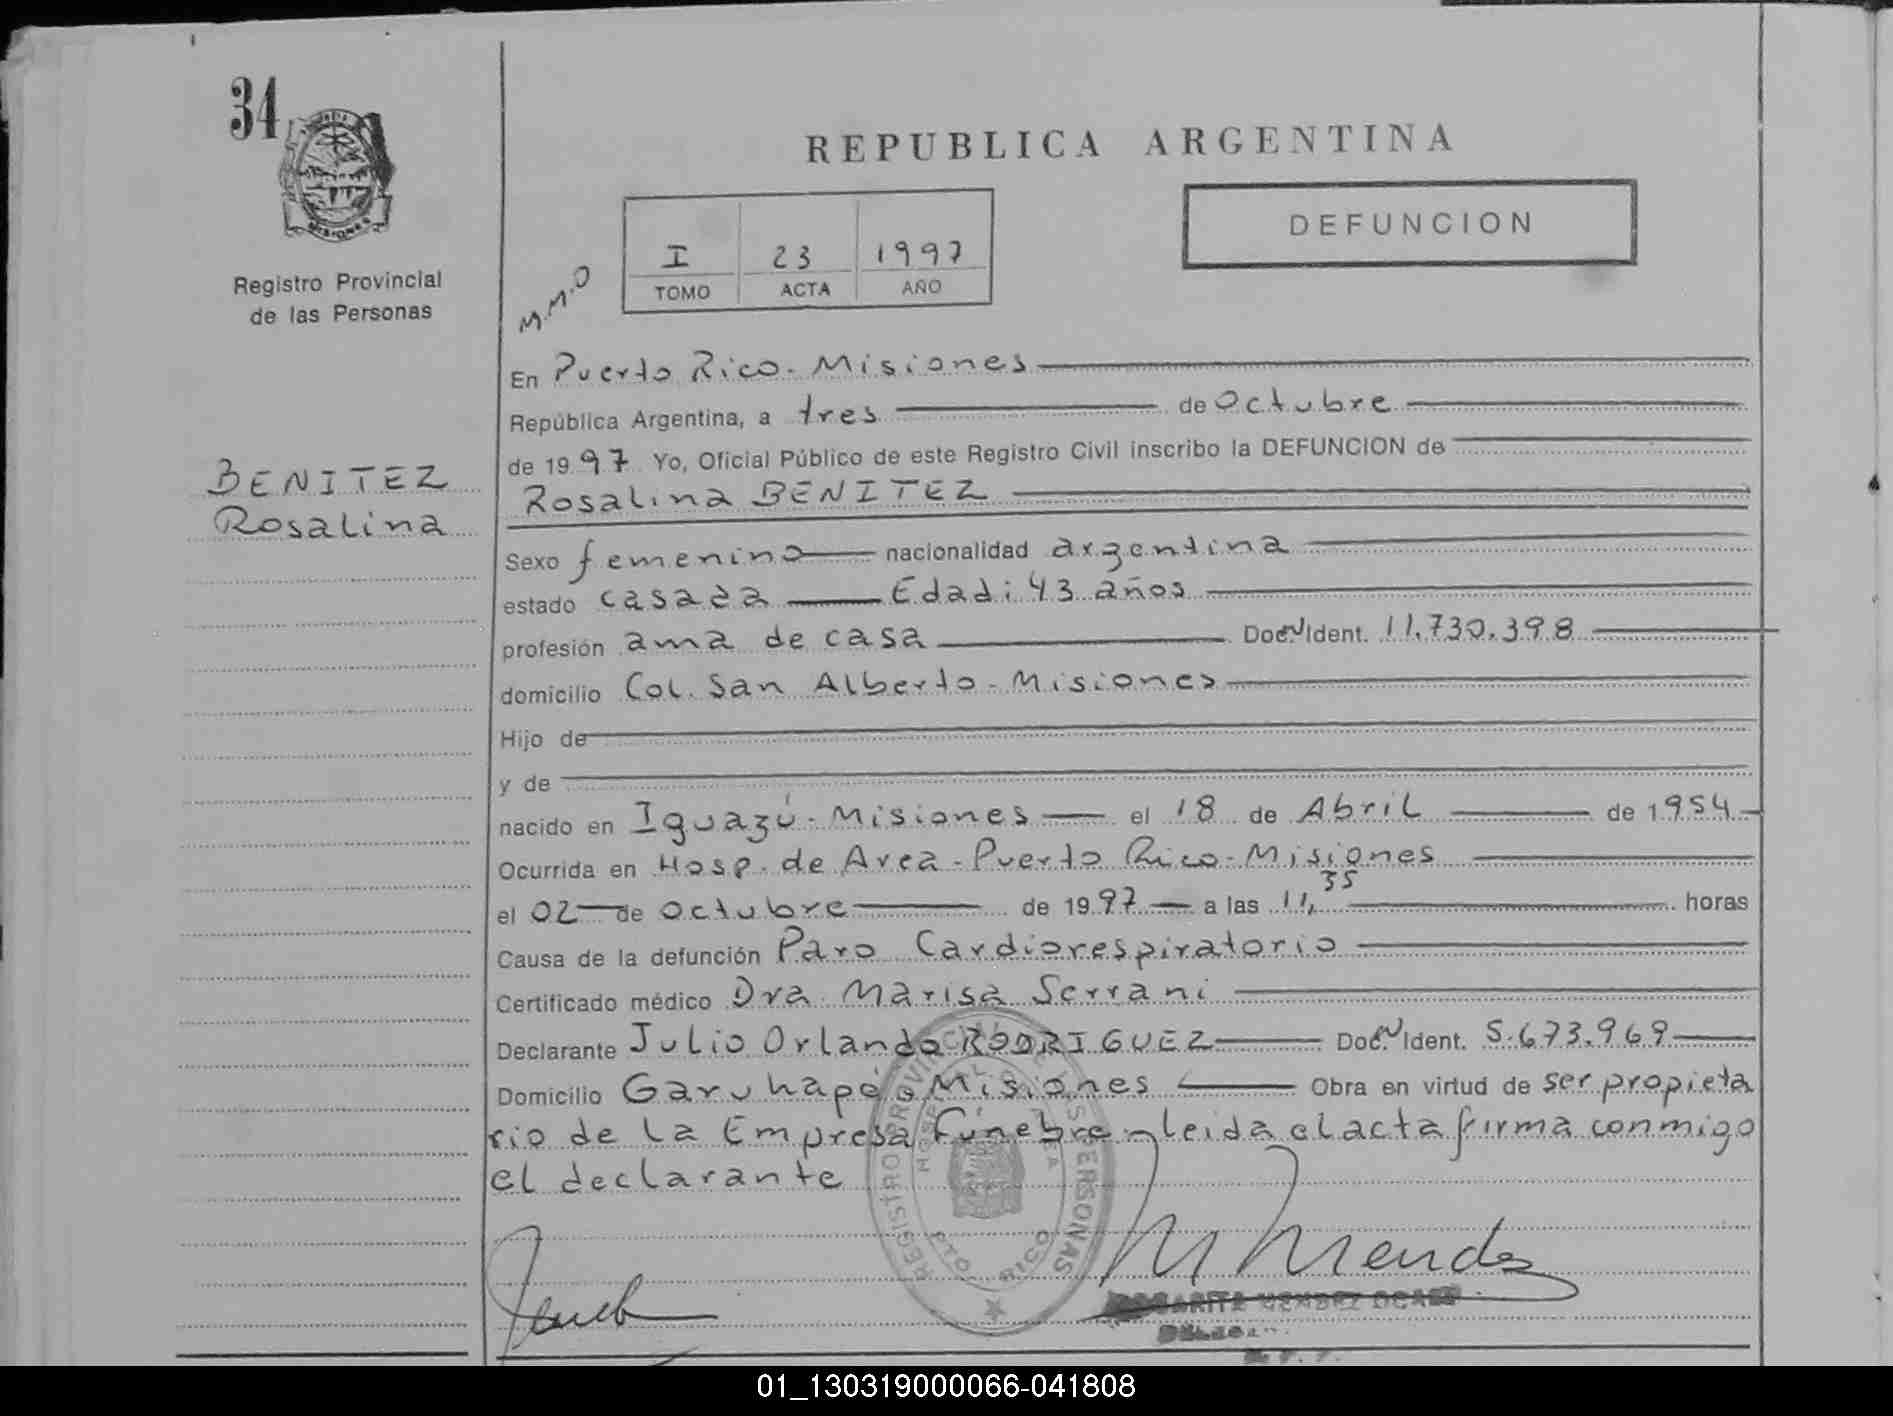 34
REPUBLICA ARGENTINA
DEFUNCION
I 23 1997
TOMO ACTA AÑO
M.M.O
Registro Provincial
de las Personas
BENITEZ
Rosalina
En Puerto Rico - Misiones
República Argentina, a tres de Octubre
de 1997 Yo, Oficial Público de este Registro Civil inscribo la DEFUNCION de
Rosalina BENITEZ
Sexo femenino nacionalidad argentina
estado casada Edad: 43 años
profesión ama de casa Doc. Ident. 11.730.398
domicilio Col. San Alberto - Misiones
Hijo de
y de
nacido en Iguazú - Misiones el 18 de Abril de 1954
Ocurrida en Hosp. de Area - Puerto Rico - Misiones
el 02 de octubre de 1997 a las 11,35 horas
Causa de la defunción Paro Cardiorespiratorio
Certificado médico Dra Marisa Serrani
Declarante Julio Orlando RODRIGUEZ Doc. Ident. 5.673.969
Domicilio Garuhapé - Misiones Obra en virtud de ser propieta
rio de la Empresa Fúnebre - leida el acta firma conmigo
el declarante
REGISTRO PERSONAS
M Mendez
MENDEZ
01_130319000066-041808